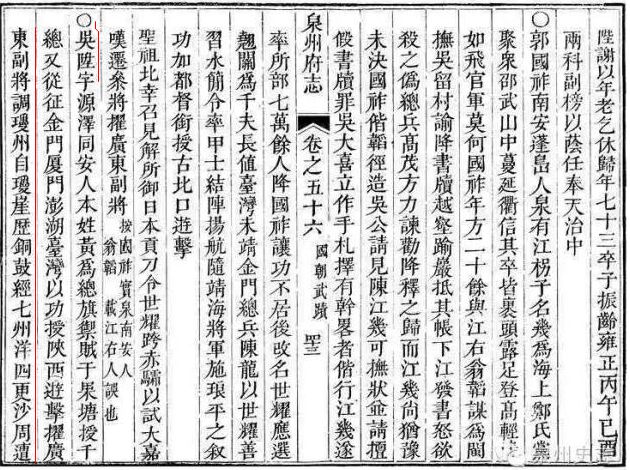 陞謝以年老乞休歸年七十三卒子振齡雍正丙午己酉
兩科副榜以蔭任奉天治中
○郭國祚南安蓬島人泉有江柺子名幾為海上鄭氏黨
聚眾邵武山中蔓延衢信其卒皆裹頭露足登高輕
如飛官軍莫何國祚年方二十餘與江右翁韜謀為閩
撫吳留村諭降書牘越壑踰巖抵其帳下江發書怒欲
殺之偽總兵髙茂方力諫勸降釋之歸而江幾尚猶豫
未決國祚偕韜徑造吳公請見陳江幾可撫狀並請擅
假書牘罪吳大喜立作手札擇有幹畧者偕行江幾遂
泉州府志
卷之五十六
國朝武蹟
率所部七萬餘人降國祚讓功不居後改名世耀應選
翹關為千夫長值臺灣未靖金門總兵陳龍以世耀善
習水簡令率甲士結陣揚航隨靖海將軍施琅平之敘
功加都督銜授古北口遊擊
聖祖北幸召見解所御日本貢刀令世耀跨赤驦以試大嘉
嘆遷叅將擢廣東副將
按國祚實泉南安人
翁韜 載江右人誤也
○吳陞字源澤同安人本姓黃為總旗禦賊于果塘授千
總又從征金門厦門澎湖臺灣以功授陝西遊擊擢廣
東副將調瓊州自瓊崖歷銅鼓經七州洋四更沙周遭